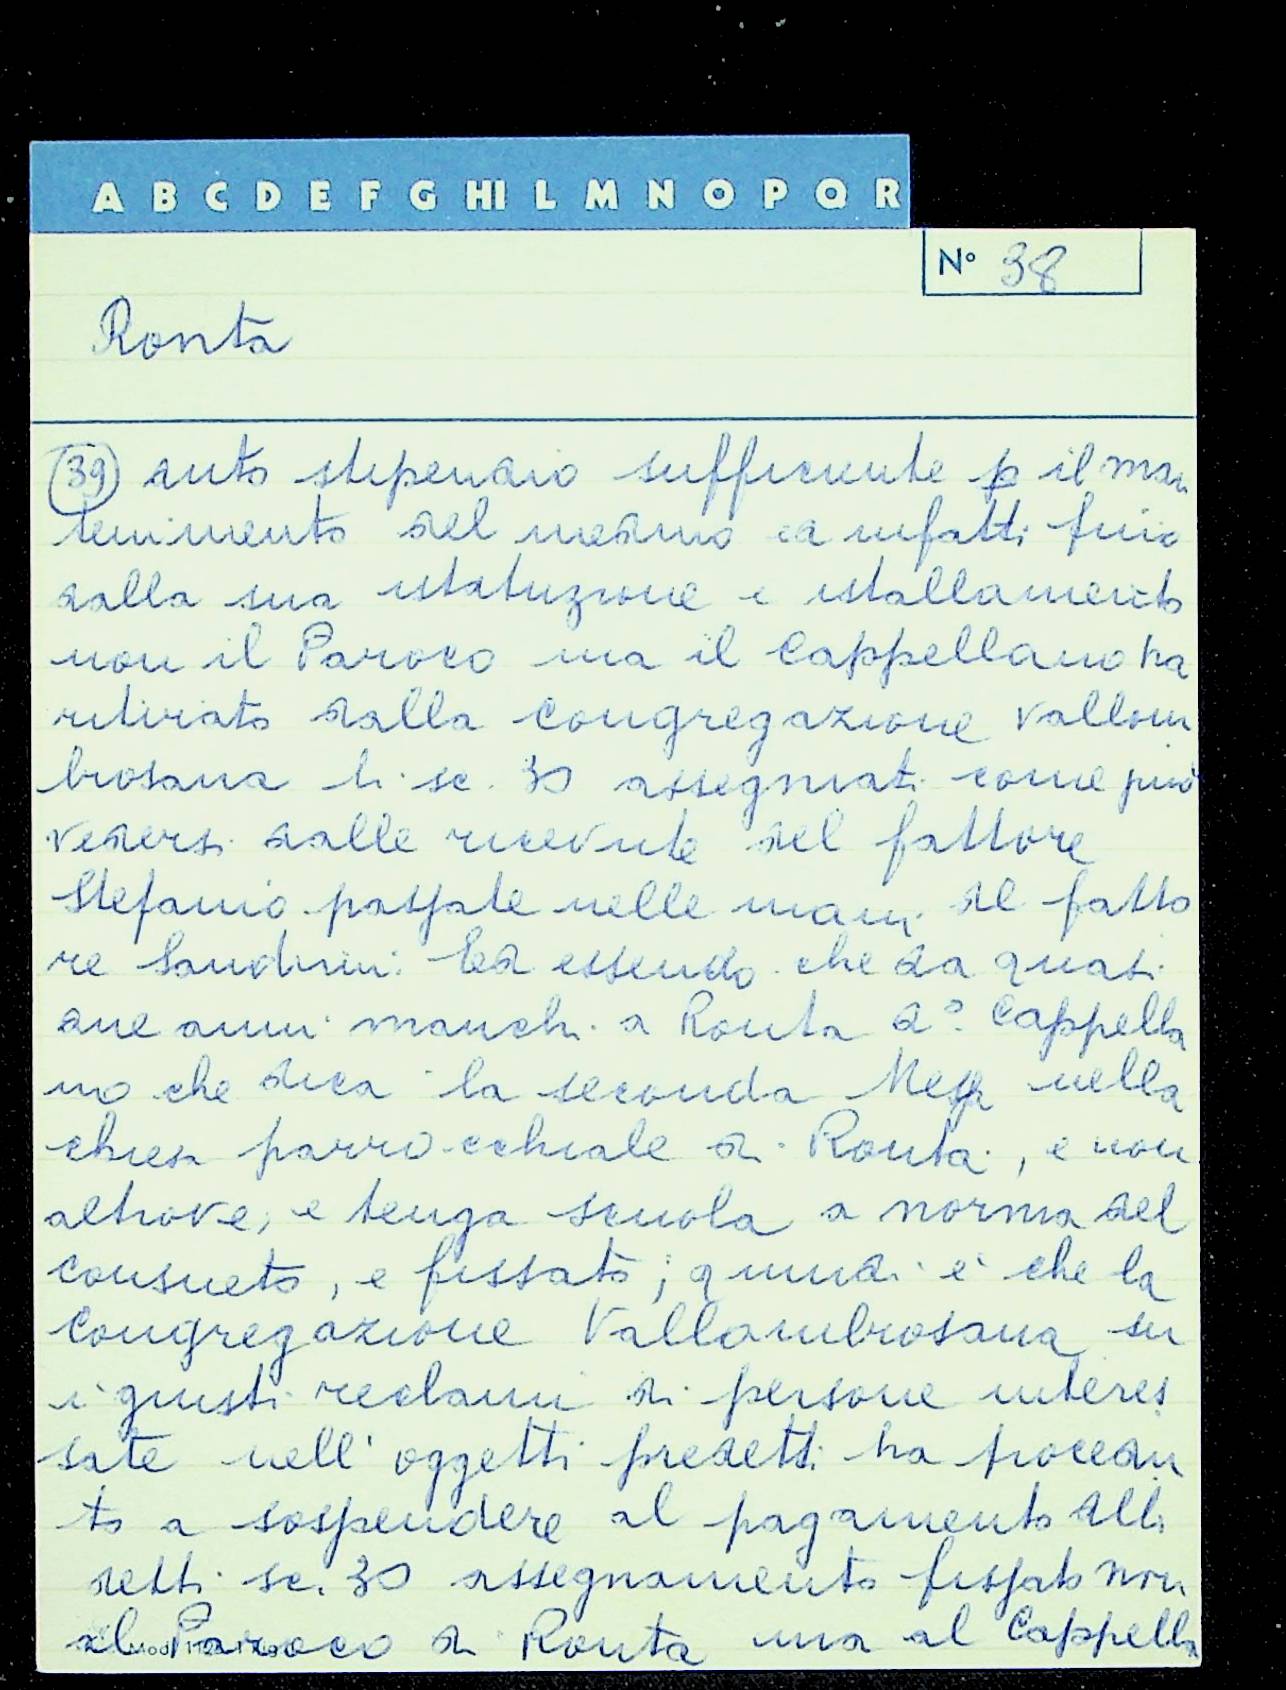 A B C D E F G HI L M N O P Q R
N° 38
Ronta
(39) duto stipendio sufficiente p il man
tenimento del medmo ed infatti fino
dalla sua istituzione e istallamento
non il Paroco ma il Cappellano ha
ritirato dalla Congregazione Vallom
brosana li sc. 30 assegniati come può
vedersi dalle ricevute del fattore
Stefanio passate nelle mani del fatto
re Sandrini. Ed essendo che da quasi
due anni manchi a Ronta do. Cappella
no che dica la seconda Messa nella
chiesa parrocchiale di Ronta, e non
altrove, e tenga scuola a norma del
consueto, e fissato; quindi è che la
Congregazione Vallombrosana su
i giusti reclami di persone interes
sate nell' oggetti predetti ha procedu
to a sospendere al pagamento delli
detti sc. 30 assegnamento fissato non
al Paroco di Ronta ma al Cappella